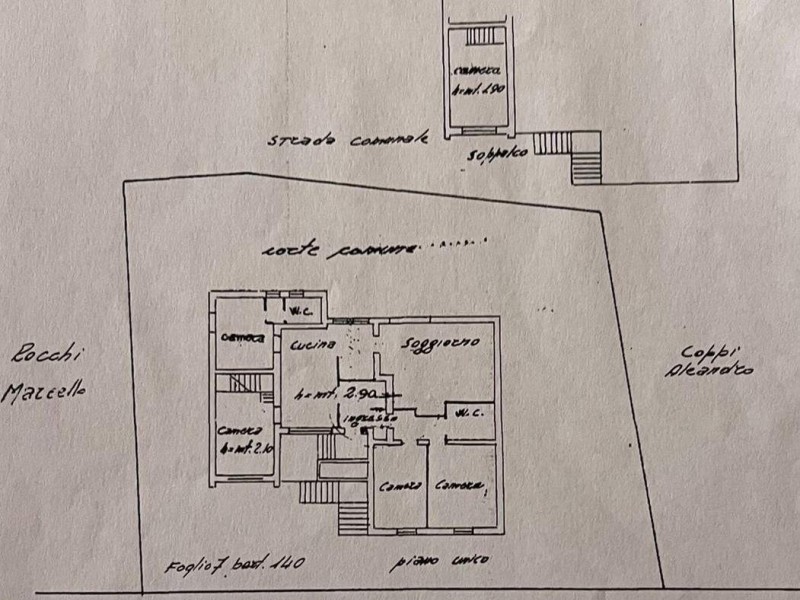 camera
h=mt. 1.90
strada comunale
soppalco
corte comune
W.C.
camera
cucina
soggiorno
Rocchi
Marcello
Coppi
Aleandro
h=mt. 2.90
ingresso
W.C.
camera
h=mt. 2.10
Camera
Camera
Foglio 7 part. 140
piano unico